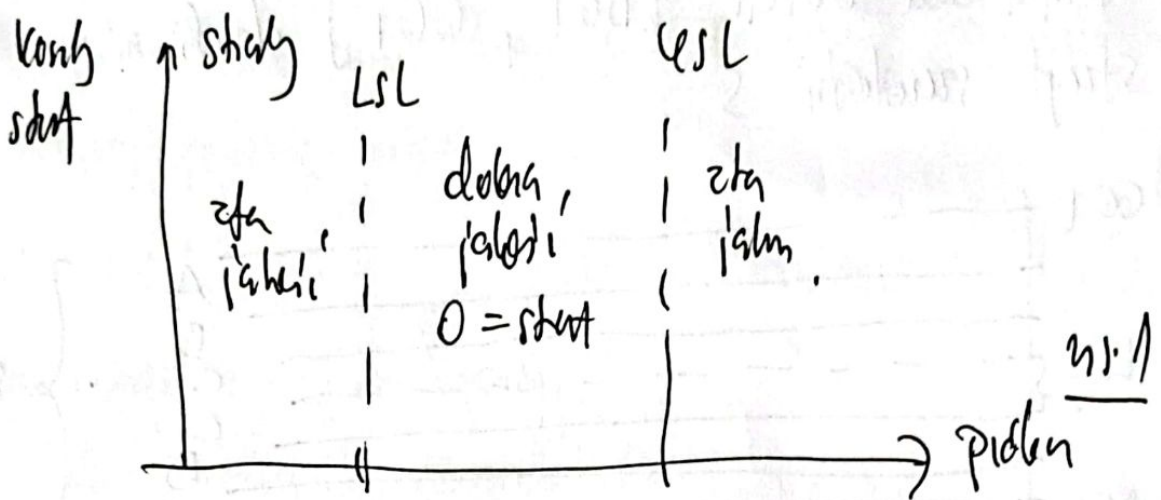 koszty
strat
straty
LSL
USL
zła
jakość
dobra
jakość
0 = strat
zła
jakoś.
rys. 1
próbka